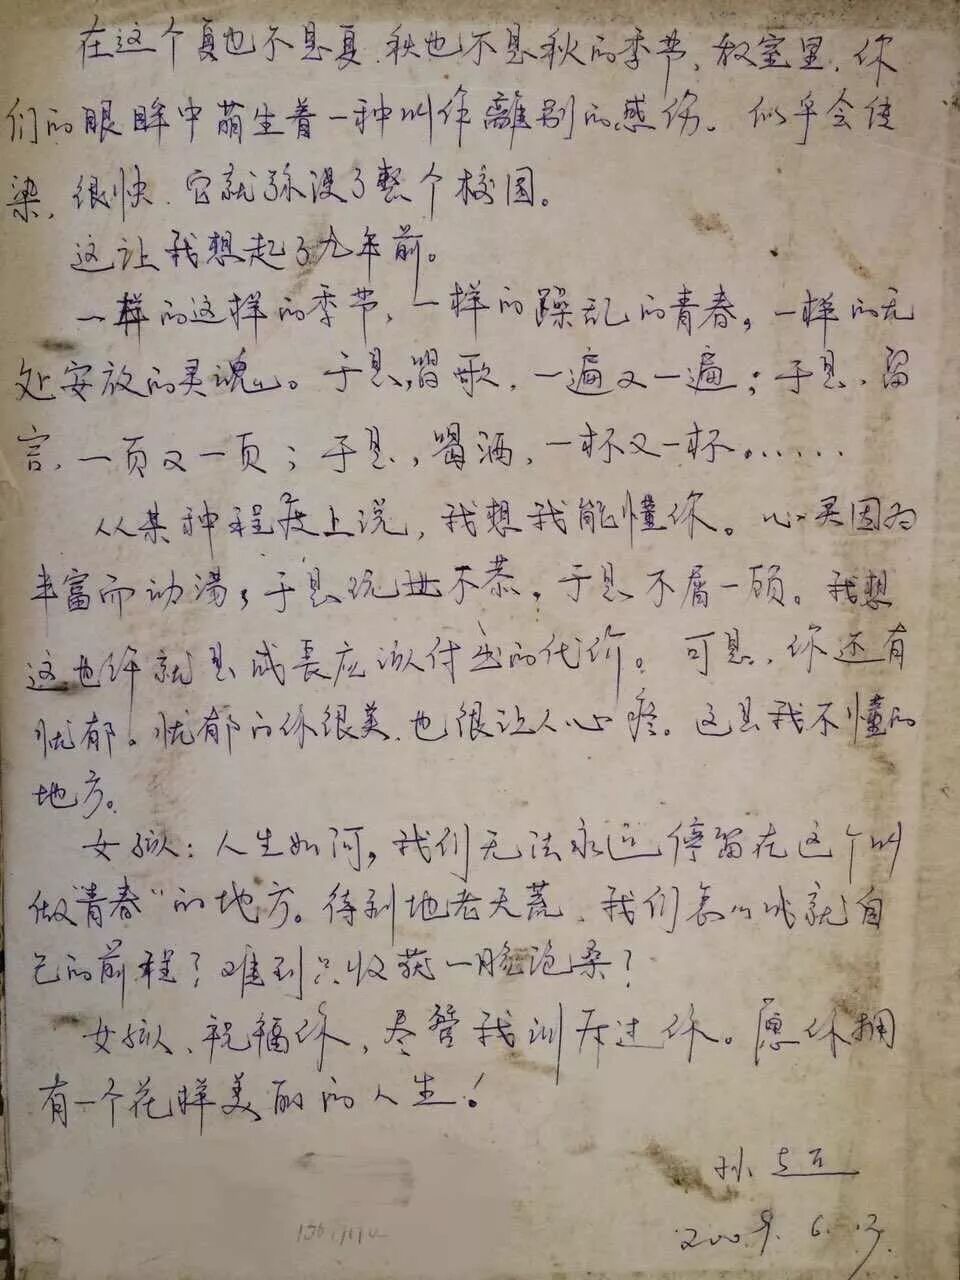 在这个夏也不是夏、秋也不是秋的季节,教室里,你
们的眼眸中萌生着一种叫作離别的感伤。似乎会传
染,很快,它就弥漫了整个校园。
这让我想起了九年前。
一样的这样的季节,一样的躁乱的青春,一样的无
处安放的灵魂。于是,唱歌,一遍又一遍;于是,留
言,一页又一页;于是,喝酒,一杯又一杯。.....
从某种程度上说,我想我能懂你。心灵因为
丰富而动荡,于是玩世不恭,于是不屑一顾。我想
这也许就是成長应该付出的代价。可是,你还有
忧郁。忧郁的你很美,也很让人心疼。这是我不懂的
地方。
女孩:人生如河,我们无法永远停留在这个叫
做“青春”的地方。待到地老天荒,我们怎么成就自
己的前程?难到只收获一脸沧桑?
女孩、祝福你,尽管我训斥过你。愿你拥
有一个花样美丽的人生!
孙
6.